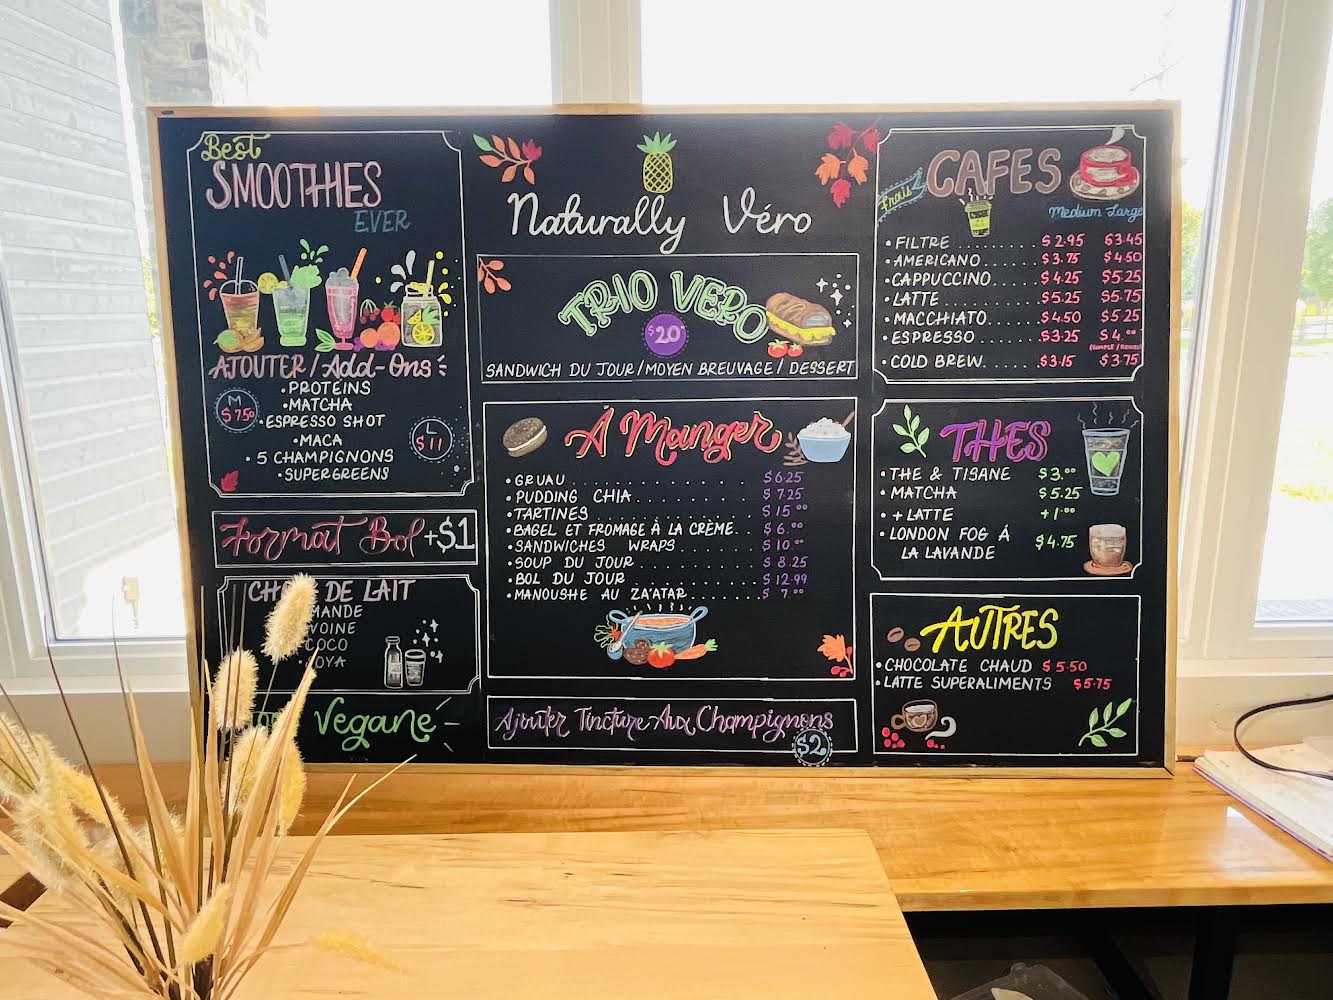 Best
SMOOTHIES
EVER
AJOUTER / Add-Ons:
• PROTÉINS
• MATCHA
• ESPRESSO SHOT
• MACA
• 5 CHAMPIGNONS
• SUPERGREENS
M
$7.50
L
$11
Format Bol +$1
DE LAIT
COCO
Végané
Naturally Véro
TRIO VERO
$20
SANDWICH DU JOUR / MOYEN BREUVAGE / DESSERT
À Manger
• GRUAU $6.25
• PUDDING CHIA $7.25
• TARTINES $15.00
• BAGEL ET FROMAGE À LA CRÈME $6.00
• SANDWICHES WRAPS $10.00
• SOUP DU JOUR $8.25
• BOL DU JOUR $12.99
• MANOUSHE AU ZA'ATAR $7.00
Ajouter Tincture Aux Champignons
$2
CAFES
Frais
Medium Large
• FILTRE $2.95 $3.45
• AMERICANO $3.75 $4.50
• CAPPUCCINO $4.25 $5.25
• LATTE $5.25 $5.75
• MACCHIATO $4.50 $5.25
• ESPRESSO $3.25 $4.00
(SIMPLE / DOUBLE)
• COLD BREW $3.15 $3.75
THES
• THE & TISANE $3.00
• MATCHA $5.25
• + LATTE +1.00
• LONDON FOG À
LA LAVANDE $4.75
AUTRES
• CHOCOLATE CHAUD $5.50
• LATTE SUPERALIMENTS $5.75